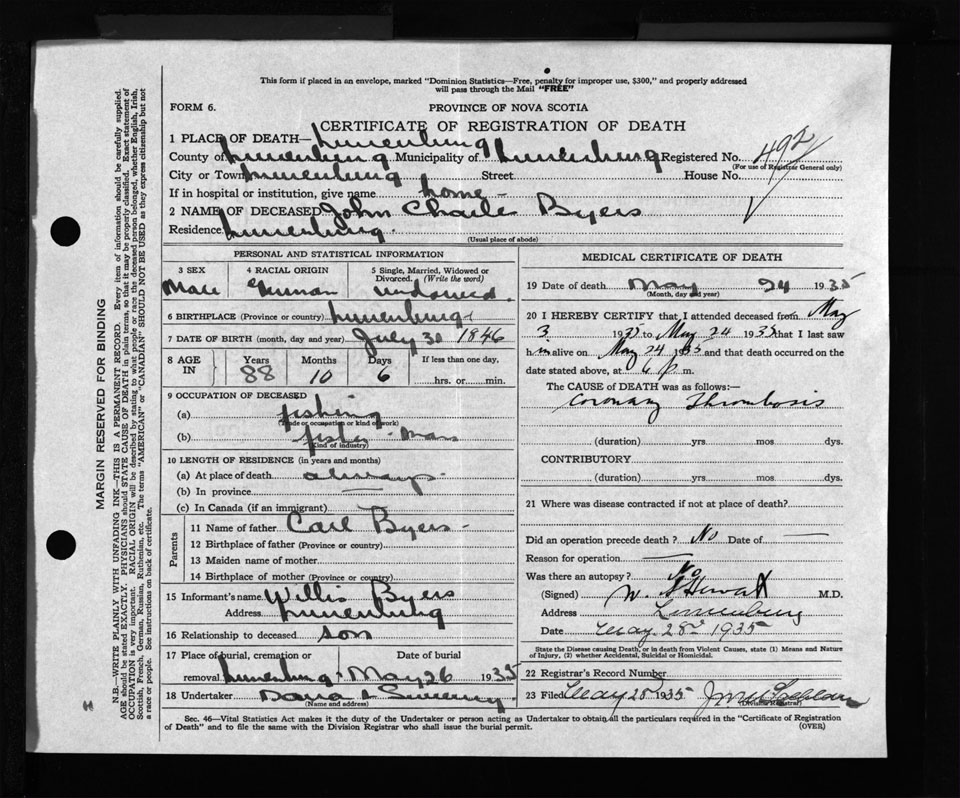 This form if placed in an envelope, marked "Dominion Statistics—Free, penalty for improper use, $300," and properly addressed
will pass through the Mail "FREE"
FORM 6.
PROVINCE OF NOVA SCOTIA
CERTIFICATE OF REGISTRATION OF DEATH
1 PLACE OF DEATH— Lunenburg
County of Lunenburg Municipality of Lunenburg Registered No. 492
(For use of Registrar General only)
City or Town Lunenburg Street House No.
If in hospital or institution, give name home
2 NAME OF DECEASED John Charle Byers
Residence Lunenburg
(Usual place of abode)
PERSONAL AND STATISTICAL INFORMATION
3 SEX 4 RACIAL ORIGIN 5 Single, Married, Widowed or
Divorced. (Write the word)
Male German widowed
6 BIRTHPLACE (Province or country) Lunenburg
7 DATE OF BIRTH (month, day and year) July 30 1846
8 AGE IN Years Months Days If less than one day,
88 10 6 hrs. or min.
9 OCCUPATION OF DECEASED
(a) fishing
(Trade or occupation or kind of work)
(b) fisher-man
(Kind of industry)
10 LENGTH OF RESIDENCE (in years and months)
(a) At place of death always
(b) In province —
(c) In Canada (if an immigrant)
Parents
11 Name of father Carl Byers -
12 Birthplace of father (Province or country)
13 Maiden name of mother
14 Birthplace of mother (Province or country)
15 Informant's name Willis Byers
Address Lunenburg
16 Relationship to deceased son
17 Place of burial, cremation or Date of burial
removal Lunenburg May 26 1935
18 Undertaker Sweeny
(Name and address)
MEDICAL CERTIFICATE OF DEATH
19 Date of death May 24 1935
(Month, day and year)
20 I HEREBY CERTIFY that I attended deceased from May
3 1935 to May 24 1935 that I last saw
him alive on May 24 1935 and that death occurred on the
date stated above, at 6 p m.
The CAUSE of DEATH was as follows:—
Coronary Thrombosis
(duration) yrs. mos. dys.
CONTRIBUTORY
(duration) yrs. mos. dys.
21 Where was disease contracted if not at place of death?
Did an operation precede death? No Date of —
Reason for operation —
Was there an autopsy? No
(Signed) W. M.D.
Address Lunenburg
Date May 28 1935
State the Disease causing Death, or in death from Violent Causes, state (1) Means and Nature
of Injury, (2) whether Accidental, Suicidal or Homicidal.
22 Registrar's Record Number
23 Filed May 28 1935
(Division Registrar)
Sec. 46—Vital Statistics Act makes it the duty of the Undertaker or person acting as Undertaker to obtain all the particulars required in the "Certificate of Registration
of Death" and to file the same with the Division Registrar who shall issue the burial permit. (OVER)
MARGIN RESERVED FOR BINDING
N.B.—WRITE PLAINLY WITH UNFADING INK—THIS IS A PERMANENT RECORD. Every item of information should be carefully supplied.
AGE should be stated EXACTLY. PHYSICIANS should STATE CAUSE OF DEATH in plain terms, so that it may be properly classified. Exact statement of
OCCUPATION is very important. RACIAL ORIGIN will be described by stating to what people or race the deceased person belonged, whether English, Irish,
Scottish, French, German, Russian, Ruthenian, etc. The terms "AMERICAN" or "CANADIAN" SHOULD NOT BE USED as they express citizenship but not
a race or people. See instructions on back of certificate.